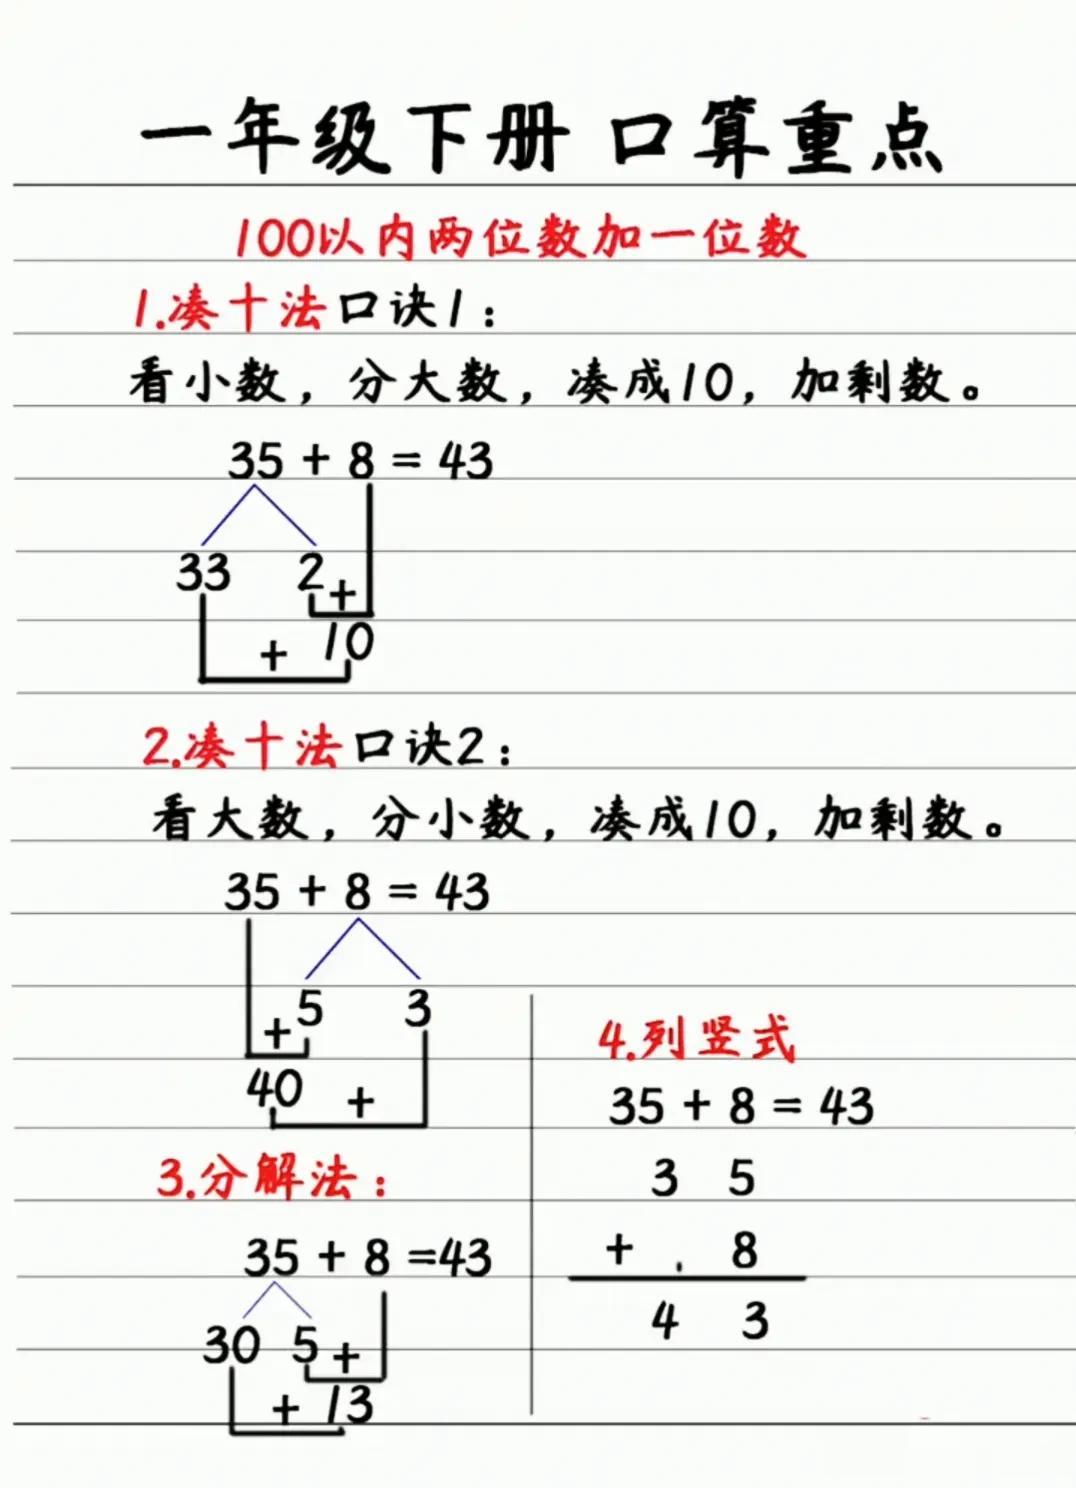 一年级下册 口算重点
100以内两位数加一位数
1.凑十法口诀1：
看小数，分大数，凑成10，加剩数。
35 + 8 = 43
33 2 +
+ 10
2.凑十法口诀2：
看大数，分小数，凑成10，加剩数。
35 + 8 = 43
+ 5 3
40 +
3.分解法：
35 + 8 =43
30 5 +
+ 13
4.列竖式
35 + 8 = 43
3 5
+ . 8
4 3